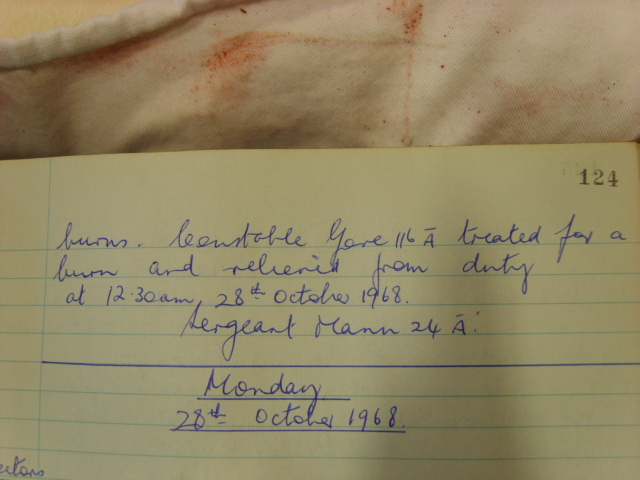 124
burns. Constable Gore 116 A treated for a
burn and relieved from duty
at 12.30am, 28th October 1968.
Sergeant Mann 24 A.
Monday
28th October 1968.